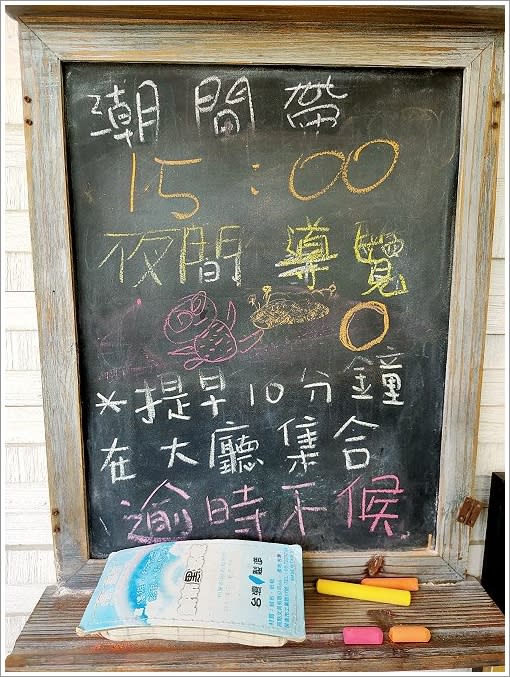 潮間帶
15:00
夜間導覽
0
*提早10分鐘
在大廳集合
逾時不候
台灣製造